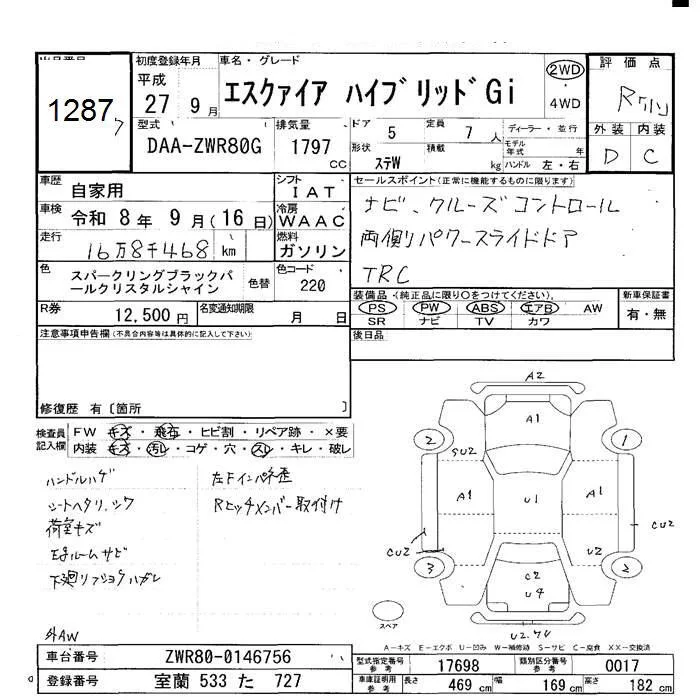 1287
初度登録年月
平成
27 9月
車名・グレード
エスクァイア ハイブリッドGi
2WD
4WD
評価点
外装 内装
D C
型式
DAA-ZWR80G
排気量
1797
cc
ドア 5
形状
ステW
定員 7人
積載 kg
ディーラー・並行
モデル年式 年
ハンドル 左・右
車歴
自家用
シフト
IAT
車検
令和 8年 9月(16日)
冷房
WAAC
走行
16万8千468 km
燃料
ガソリン
色
スパークリングブラックパールクリスタルシャイン
色替
色コード
220
R券
12,500円
名変通知期限
月 日
セールスポイント(正常に機能するものに限ります)
ナビ、クルーズコントロール
両側パワースライドドア
TRC
装備品(純正品に限り○をつけてください)
PS PW ABS エアB AW
SR ナビ TV カワ
新車保証書
有・無
後日品
注意事項申告欄(不具合内容等は具体的に記入して下さい)
修復歴 有〔箇所 〕
検査員記入欄
FW キズ・飛石・ヒビ割・リペア跡・×要
内装 キズ・汚レ・コゲ・穴・スレ・キレ・破レ
ハンドルハゲ
シートヘタリ、シワ
荷室キズ
下廻リ
左Fインパネ歪
Rヒッチメンバー取付け
外AW
A2
A1
2 1
SU2
A1 U1 A1
CU2 CU2
U2
3 2
C2
U4
スペア
A-キズ E-エクボ U-凹み W-補修跡 S-サビ C-腐食 XX-交換済
車台番号
ZWR80-0146756
登録番号
室蘭 533 た 727
型式指定番号
参考
17698
類別区分番号
参考
0017
車庫証明用
参考
長さ 469 cm
幅 169 cm
高さ 182 cm